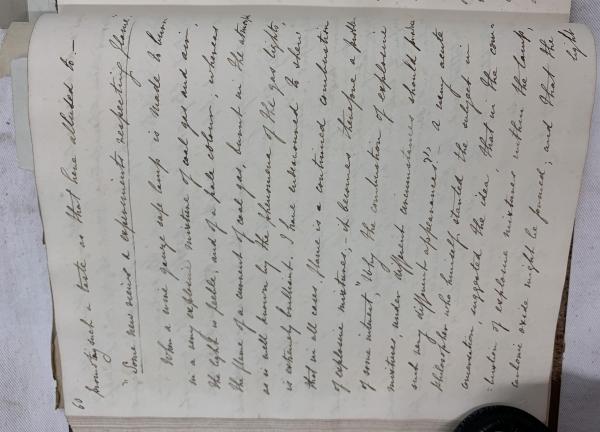 60
promoting such a taste is that here alluded to.—
"Some new views & experiments respecting flame.
When a wire gauze safe lamp is made to burn
in a very explosive mixture of coal gas and air,
the light is feeble, and of a pale colour; whereas
the flame of a current of coal gas, burnt in the atmosp
as is well known by the phenomena of the gas lights,
is extremely brilliant. I have endeavoured to shew
that in all cases, flame is a continued combustion
of explosive mixtures;— it becomes therefore a probl
of some interest, "Why the combustion of explosive
mixtures, under different circumstances should produ
such very different appearances"?— A very acute
Philosopher who himself started the subject in
conversation, suggested the idea, that in the com-
bustion of explosive mixtures within the lamp,
carbonic oxide might be formed; and that the
light